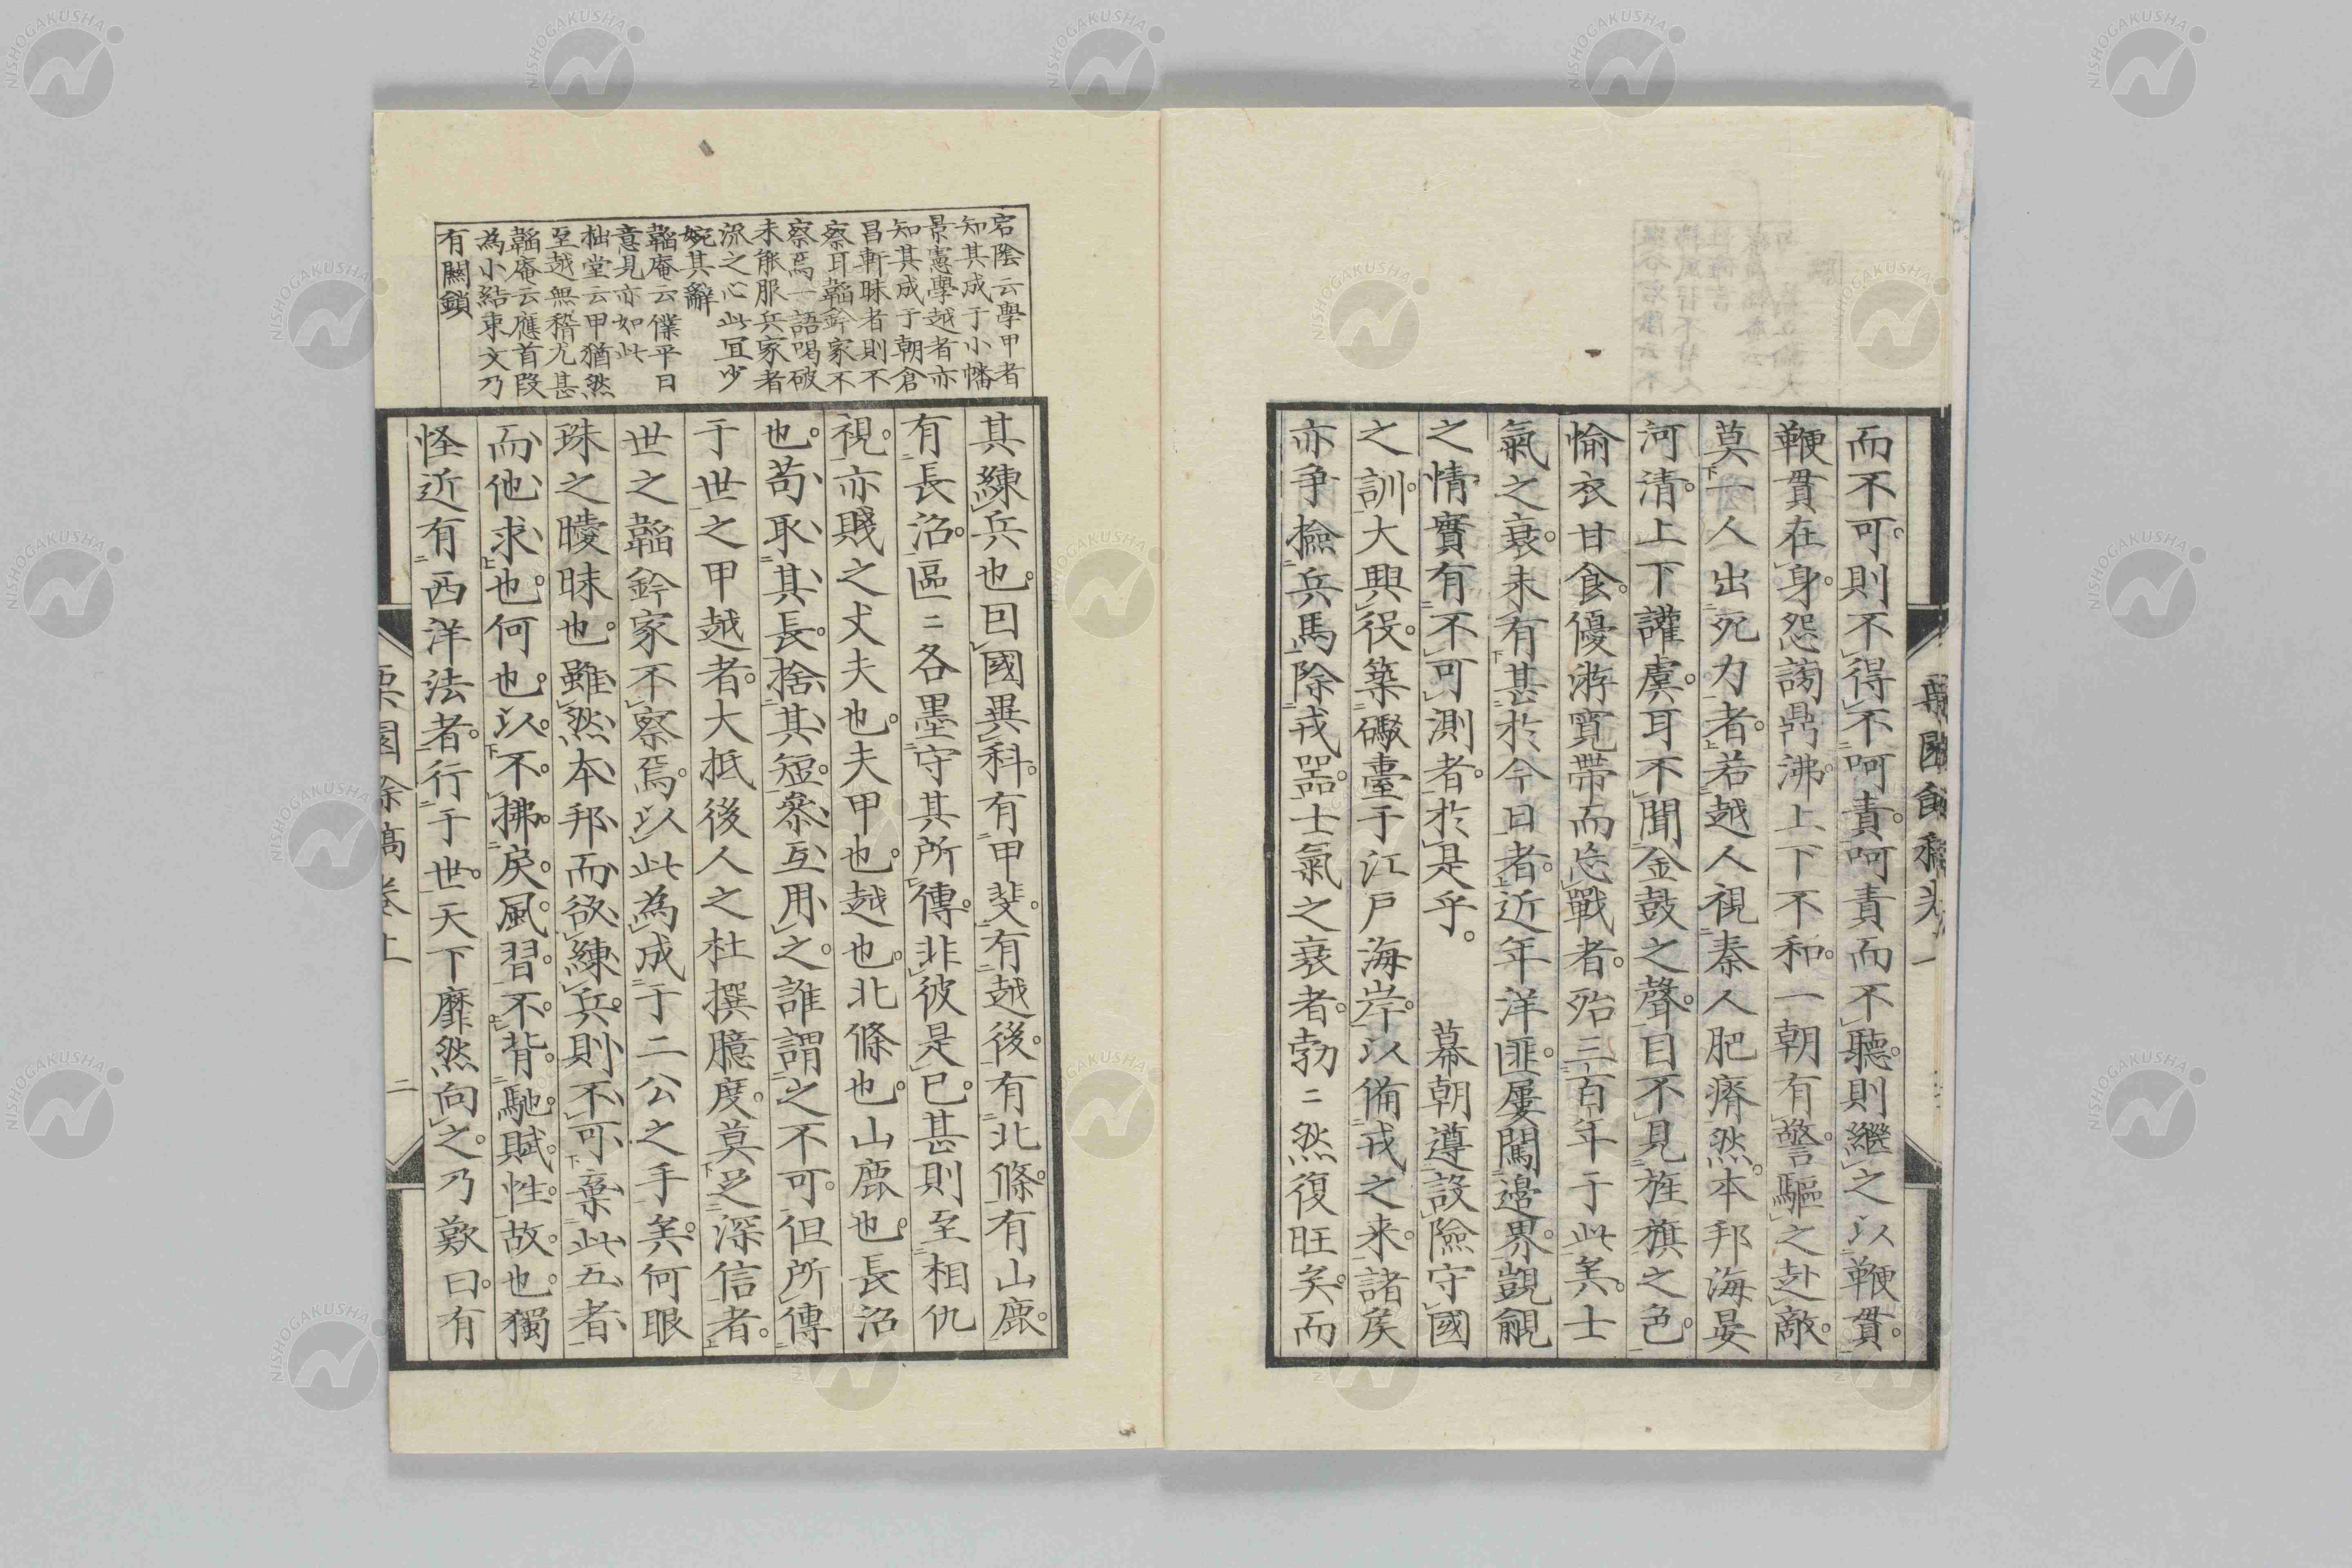 而不可。則不得不呵責。呵責而不聽。則繼之以鞭貫。
鞭貫在身。怨謗鼎沸。上下不和。一朝有警。驅之赴敵。
莫一人出死力者。若越人視秦人肥瘠然。本邦海晏
河清。上下讙虞。耳不聞金鼓之聲。目不見旌旗之色。
愉衣甘食。優游寬帶而忘戰者。殆三百年于此矣。士
氣之衰。未有甚於今日者。近年洋匪。屢闖邊界。覬覦
之情實有不可測者。於是乎。幕朝遵設險守國
之訓。大興役。築礮臺于江戶海岸。以備戎之来。諸矦
亦爭撿兵馬。除戎器。士氣之衰者。勃〻然復旺矣。而
宕陰云學甲者
知其成于小幡
景憲學越者亦
知其成于朝倉
昌軒昧者則不
察耳韜鈐家不
察焉一語喝破
未能服兵家者
流之心此宜少
婉其辭
韜庵云僕平日
意見亦如此
拙堂云甲猶然
至越無稽尤甚
韜庵云應首段
為小結束文乃
有關鎖
其練兵也。囙國異科。有甲斐。有越後。有北條。有山鹿。
有長沼。區〻各墨守其所傳。非彼是已。甚則至相仇
視。亦賤之丈夫也。夫甲也。越也。北條也。山鹿也。長沼
也。苟取其長。捨其短。叅互用之。誰謂之不可。但所傳
于世之甲越者。大抵後人之杜撰臆度。莫足深信者。
世之韜鈐家不察焉。以此為成于二公之手矣。何眼
珠之矇昧也。雖然本邦而欲練兵。則不可棄此五者
而他求也。何也。以不拂戾風習。不背馳賦性。故也。獨
怪近有西洋法者。行于世。天下靡然向之。乃歎曰。有
栗園餘稿卷上
二